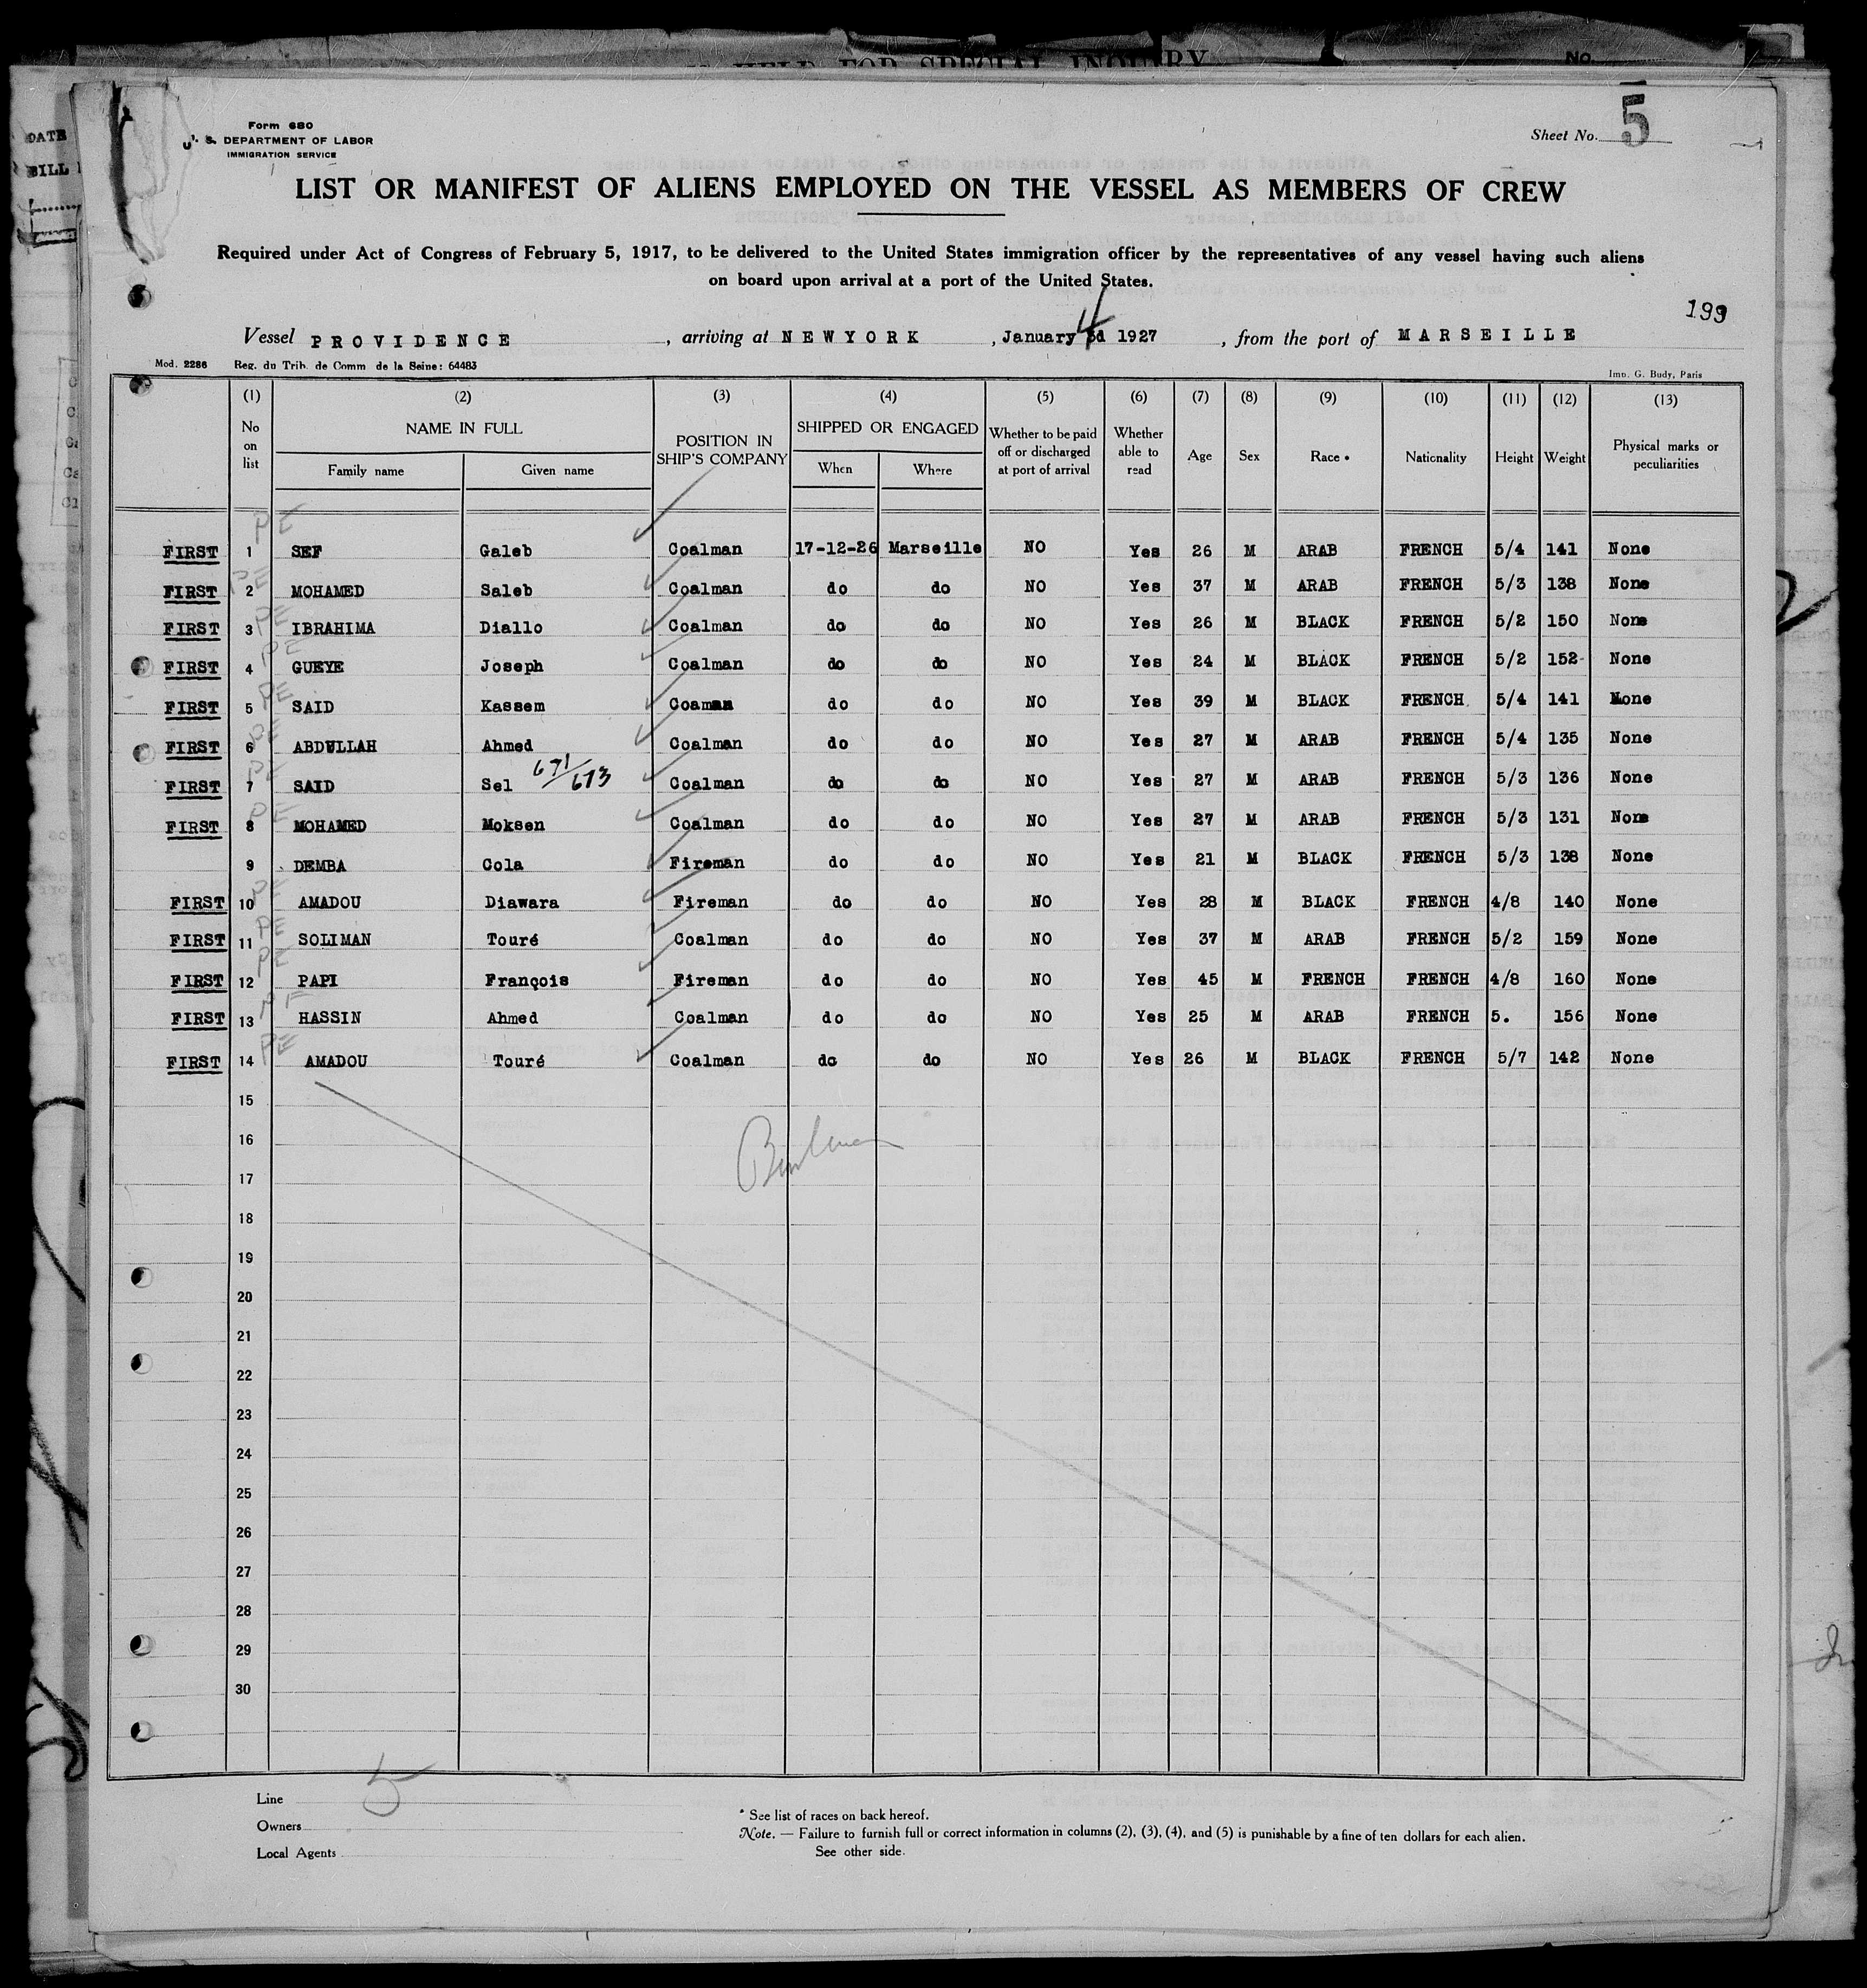 HELD FOR SPECIAL INQUIRY
No.
DATE
Form 680
U. S. DEPARTMENT OF LABOR
IMMIGRATION SERVICE
Sheet No. 5
LIST OR MANIFEST OF ALIENS EMPLOYED ON THE VESSEL AS MEMBERS OF CREW
Required under Act of Congress of February 5, 1917, to be delivered to the United States immigration officer by the representatives of any vessel having such aliens
on board upon arrival at a port of the United States.
199
Vessel PROVIDENCE, arriving at NEWYORK, January 4 3d 1927, from the port of MARSEILLE
Mod. 2286 Reg. du Trib. de Comm de la Seine: 64483 Imp. G. Budy, Paris
(1) (2) (3) (4) (5) (6) (7) (8) (9) (10) (11) (12) (13)
No on list NAME IN FULL Family name Given name POSITION IN SHIP'S COMPANY SHIPPED OR ENGAGED When Where Whether to be paid off or discharged at port of arrival Whether able to read Age Sex Race • Nationality Height Weight Physical marks or peculiarities
FIRST 1 PE SEF Galeb Coalman 17-12-26 Marseille NO Yes 26 M ARAB FRENCH 5/4 141 None
FIRST 2 PE MOHAMED Saleb Coalman do do NO Yes 37 M ARAB FRENCH 5/3 138 None
FIRST 3 PE IBRAHIMA Diallo Coalman do do NO Yes 26 M BLACK FRENCH 5/2 150 None
FIRST 4 PE GUEYE Joseph Coalman do do NO Yes 24 M BLACK FRENCH 5/2 152 None
FIRST 5 PE SAID Kassem Coaman do do NO Yes 39 M BLACK FRENCH 5/4 141 None
FIRST 6 PE ABDULLAH Ahmed Coalman do do NO Yes 27 M ARAB FRENCH 5/4 135 None
FIRST 7 PE SAID Sel 671/673 Coalman do do NO Yes 27 M ARAB FRENCH 5/3 136 None
FIRST 8 PE MOHAMED Moksen Coalman do do NO Yes 27 M ARAB FRENCH 5/3 131 None
9 DEMBA Cola Fireman do do NO Yes 21 M BLACK FRENCH 5/3 138 None
FIRST 10 PE AMADOU Diawara Fireman do do NO Yes 28 M BLACK FRENCH 4/8 140 None
FIRST 11 PE SOLIMAN Touré Coalman do do NO Yes 37 M ARAB FRENCH 5/2 159 None
FIRST 12 PE PAPI François Fireman do do NO Yes 45 M FRENCH FRENCH 4/8 160 None
FIRST 13 PE HASSIN Ahmed Coalman do do NO Yes 25 M ARAB FRENCH 5. 156 None
FIRST 14 PE AMADOU Touré Coalman do do NO Yes 26 M BLACK FRENCH 5/7 142 None
15
16
17
18
19
20
21
22
23
24
25
26
27
28
29
30
5
Line
Owners
Local Agents
* See list of races on back hereof.
Note. — Failure to furnish full or correct information in columns (2), (3), (4), and (5) is punishable by a fine of ten dollars for each alien.
See other side.